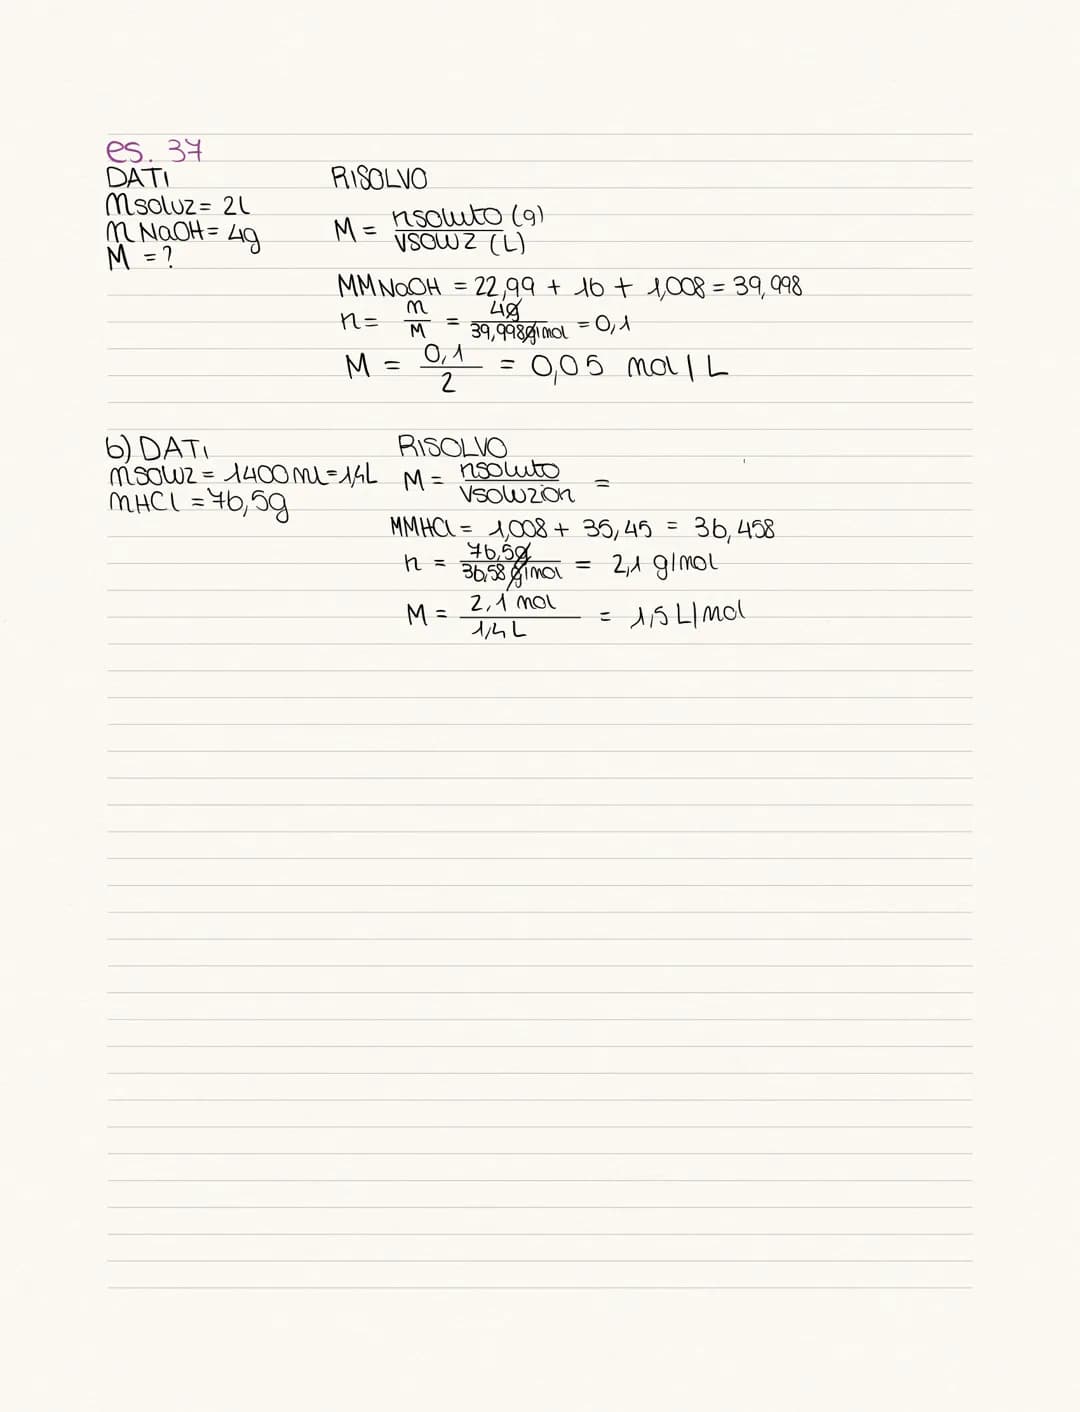 es. 37
DATI RISOLVO
msoluz = 2l
m NaOH = 4g M = nsoluto (g) / Vsoluz (L)
M = ?
MMNaOH = 22,99 + 16 + 1,008 = 39,998
n = m/M = 4g / 39,998g/mol = 0,1
M = 0,1 / 2 = 0,05 mol/L
b) DATI RISOLVO
msoluz = 1400 ml = 1,4L M = nsoluto / Vsoluzion =
mHCl = 76,5g
MMHCl = 1,008 + 35,45 = 36,458
n = 76,5g / 36,58 g/mol = 2,1 g/mol
M = 2,1 mol / 1,4 L = 1,5 L/mol